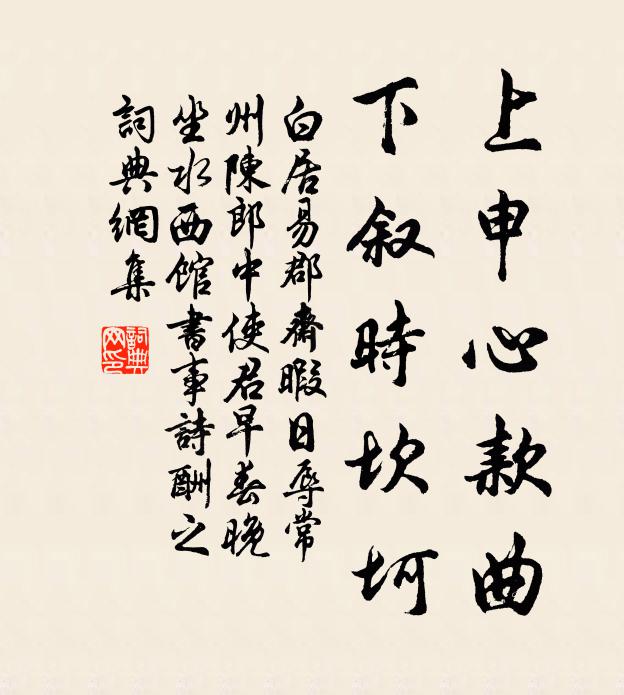 上申心款曲
下叙時坎坷
白居易郡齋暇日辱常
州陳郎中使君早春晚
坐水西館書事詩酬之
詞典網集
詞典網印